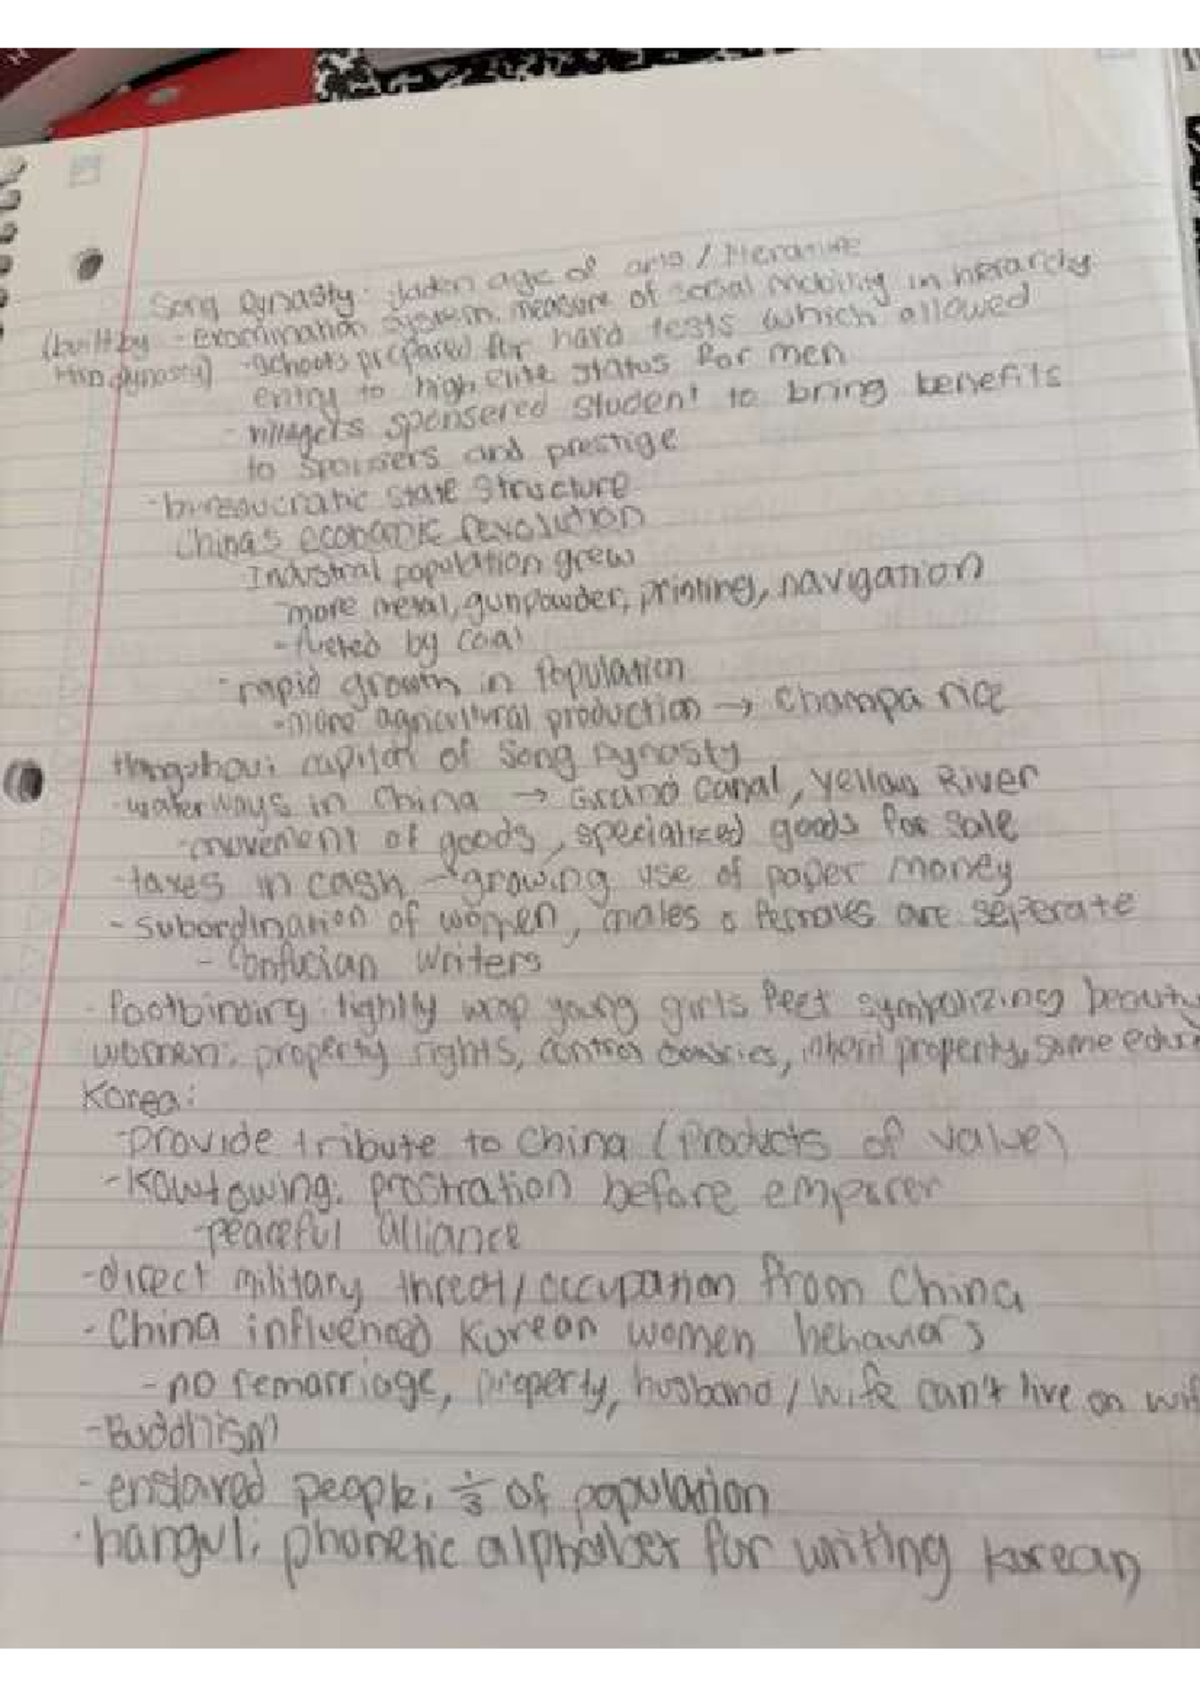 Song Dynasty: golden age of arts / literature
(built by - examination system: measure of social mobility in hierarchy
Han dynasty) - schools prepared for hard tests which allowed
entry to high elite status for men
- villagers sponsered student to bring benefits
to sponsers and prestige
- bureaucratic state structure
China's economic revolution
Industrial population grew
- more metal, gunpowder, printing, navigation
- fueled by coal
- rapid growth in population
- more agricultural production → Champa rice
Hangzhou: capital of Song Dynasty
- waterways in China → Grand Canal, Yellow River
- movement of goods, specialized goods for sale
- taxes in cash → growing use of paper money
- subordination of women, males & females are seperate
- Confucian writers
- footbinding: tightly wrap young girls feet symbolizing beauty
women: property rights, control dowries, inherit property, some educ
Korea:
- provide tribute to China (Products of value)
- Kowtowing: prostration before emperer
- peaceful alliance
- direct military threat / occupation from China
- China influenced Korean women behaviors
- no remarriage, property, husband / wife can't live on wif
- Buddhism
- enslaved people: 1/3 of population
- hangul: phonetic alphabet for writing Korean